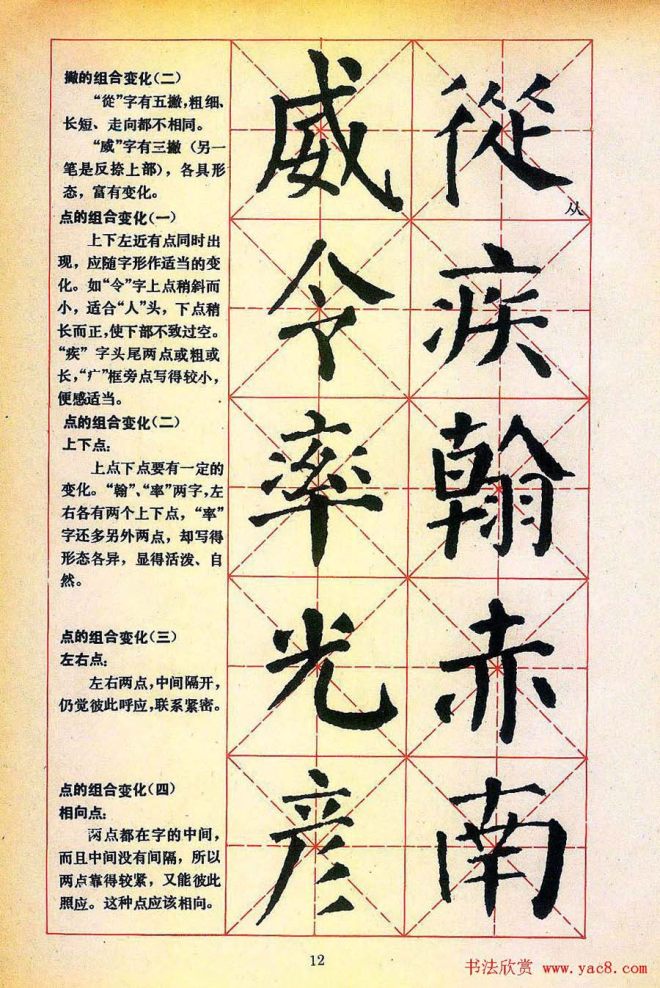 撇的组合变化(二)
“從”字有五撇,粗细、
长短、走向都不相同。
“威”字有三撇(另一
笔是反捺上部),各具形
态,富有变化。
点的组合变化(一)
上下左近有点同时出
现,应随字形作适当的变
化。如“令”字上点稍斜而
小,适合“人”头,下点稍
长而正,使下部不致过空。
“疾”字头尾两点或粗或
长,“疒”框旁点写得较小,
便感适当。
点的组合变化(二)
上下点:
上点下点要有一定的
变化。“翰”、“率”两字,左
右各有两个上下点,“率”
字还多另外两点,却写得
形态各异,显得活泼、自
然。
点的组合变化(三)
左右点:
左右两点,中间隔开,
仍觉彼此呼应,联系紧密。
点的组合变化(四)
相向点:
两点都在字的中间,
而且中间没有间隔,所以
两点靠得较紧,又能彼此
照应。这种点应该相向。
威 從
从
令 疾
率 翰
光 赤
彦 南
12
书法欣赏 www.yac8.com